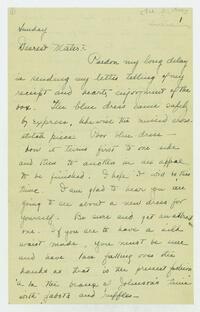 1
Sunday
Dearest Mater:
Pardon my long delay
in sending my letter telling of my
receipt and hearty enjoyment of the
box. The blue dress came safely
by express, likewise the missed cross-
stitch piece. Poor blue dress —
how it turns first to one side
and then to another in an appeal
to be finished. I hope I will in this
time. I am glad to hear you are
going to see about a new dress for
yourself. Be sure and get an
one. If you are to have a silk
waist made, you must be sure
and have lace falling over the
hands as that is the present
with jabots and ruffles